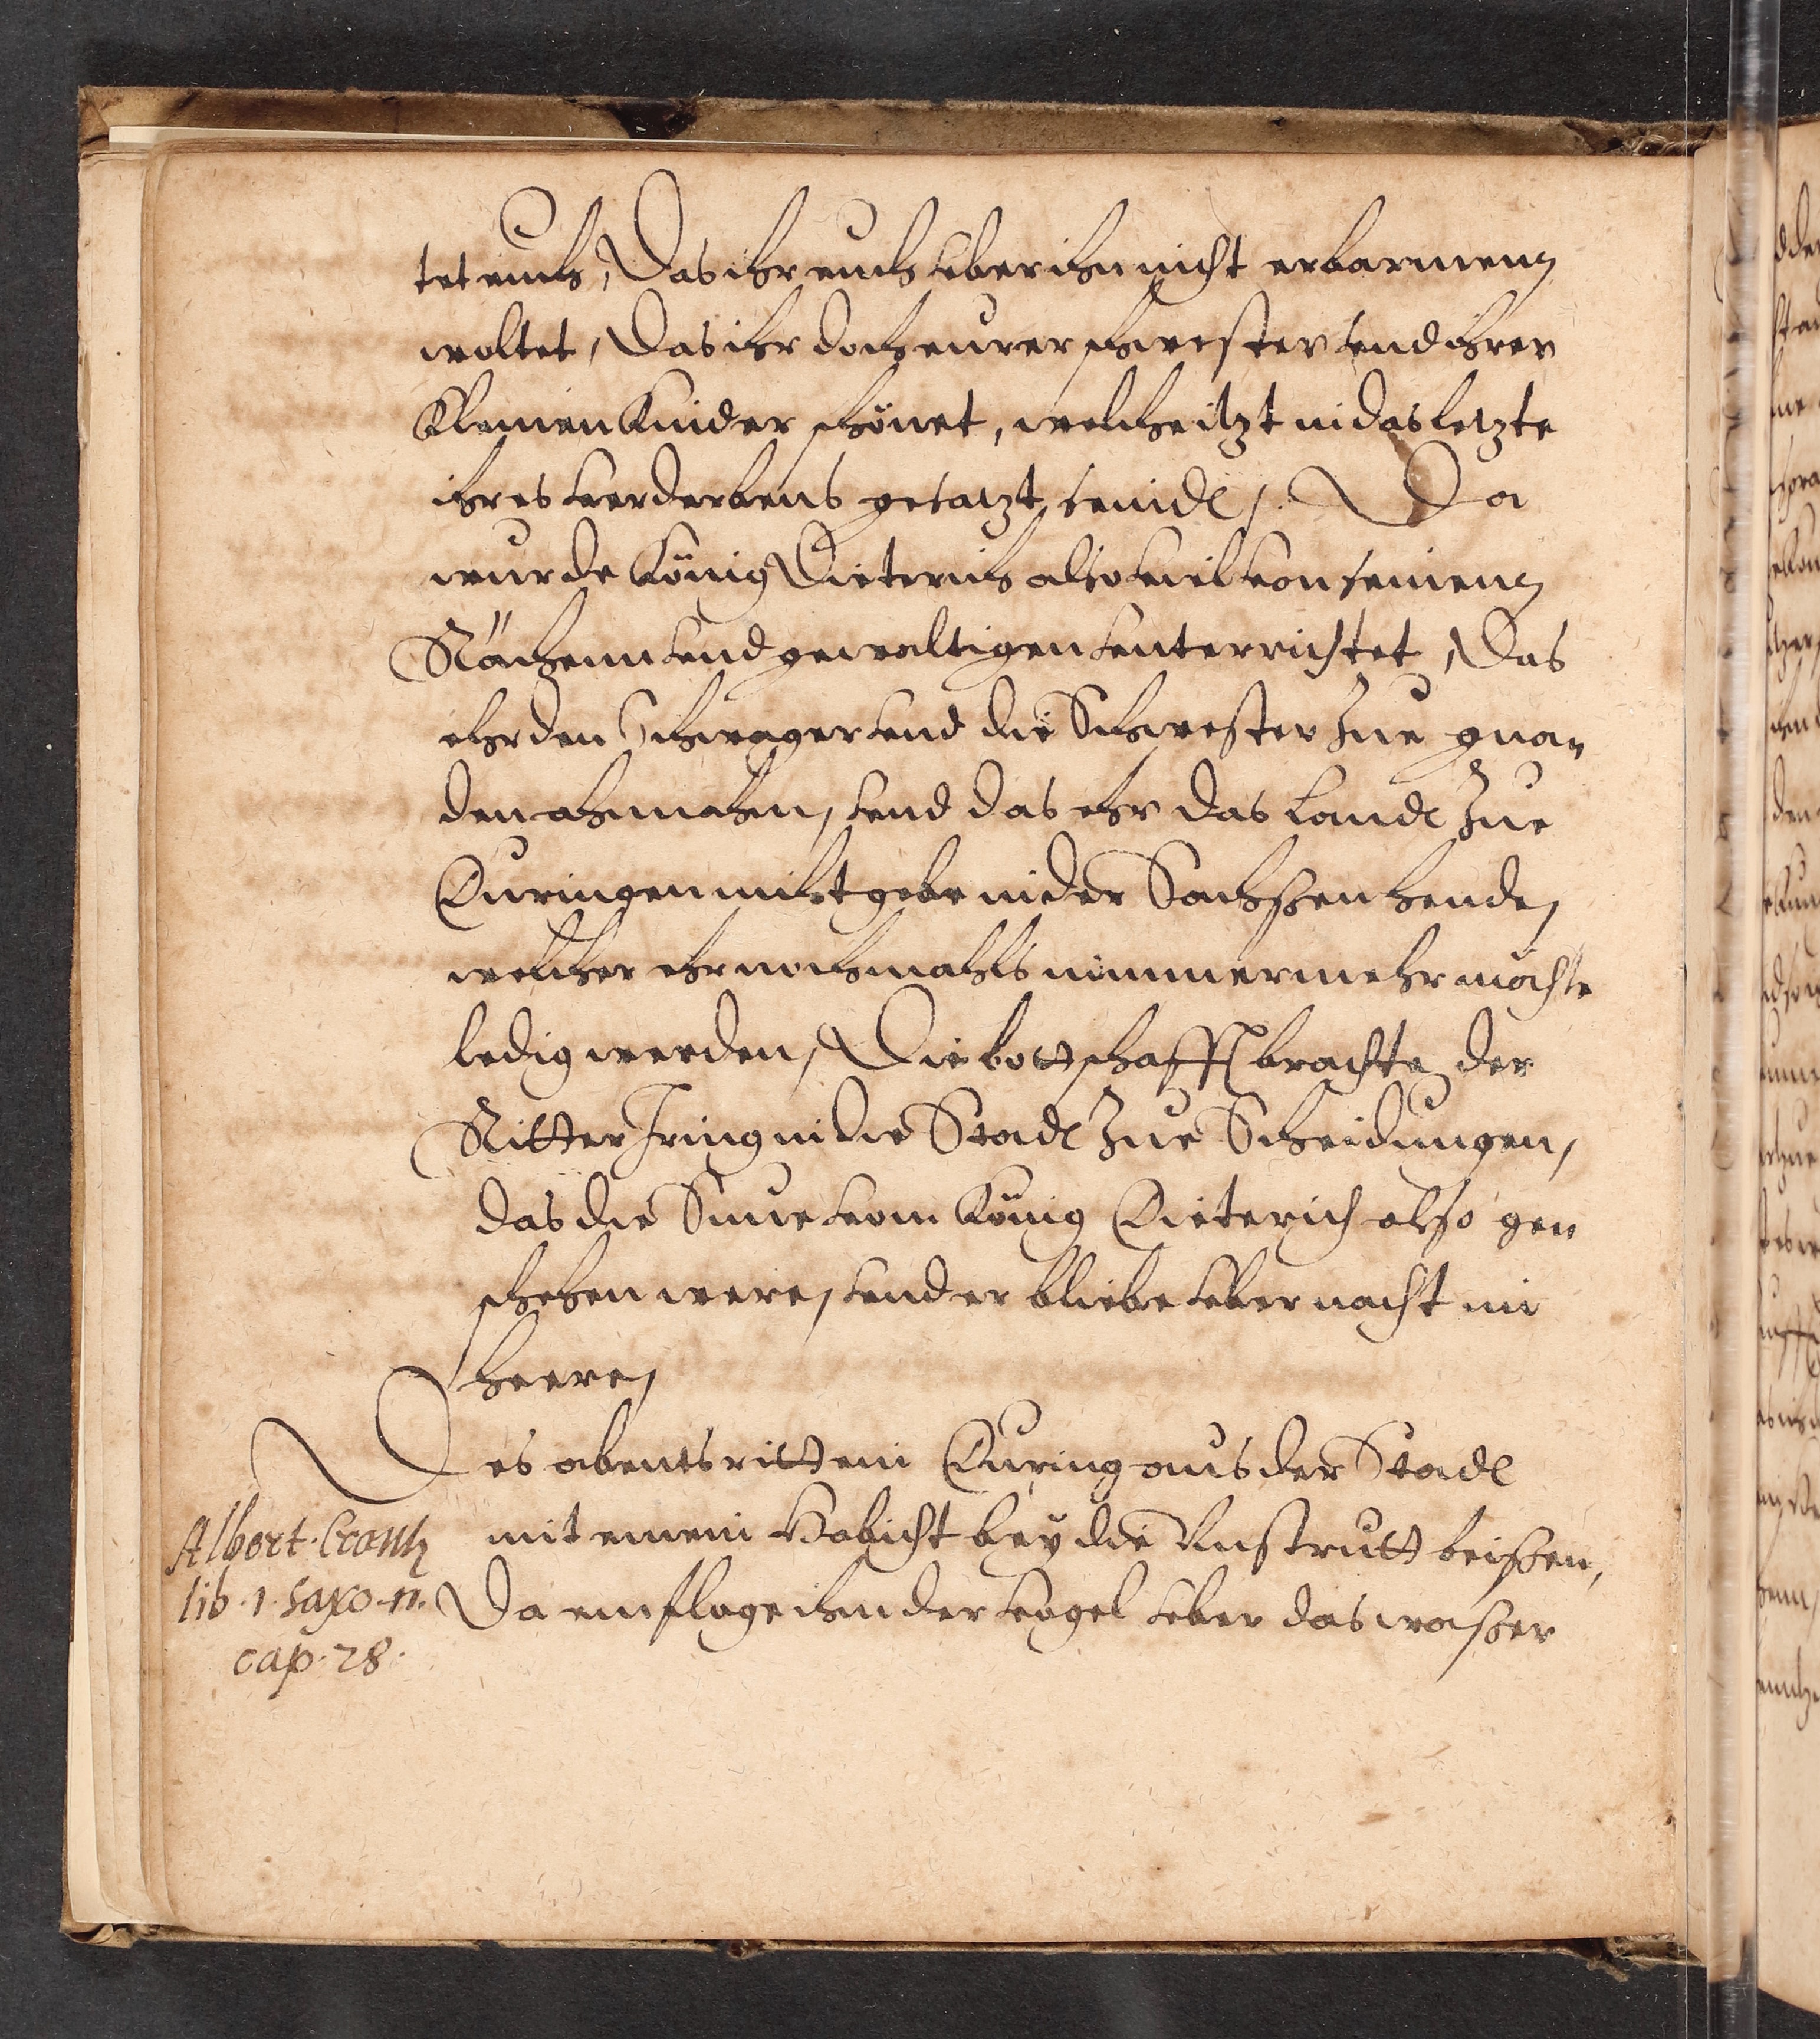 tet euch, Das ihr euch vber ihn nicht erbarmen
woltet, Das ihr doch eurer schwester vnd ihrer
Kleinen Kinder schönet, welche itzt in das letzte
ihres verderbens gesatzt seindt, Da
wurde König Dieterich also viel von seinen
Rächenn vnd gewaltigen vnterrichtet, Das
ehr den Schwager vnd die Schwester zue gna,
den ahnnahm, vnd das ehr das landt zue
Duringen nicht gebe in der Sachßen hende,
welcher ehr nochmahls nimmermehr möchte
ledig werden, Die bottschafft brachte der
Ritter Iring in die Stadt zue Scheidungen,
das die Sune vom König Dieterich also gen
schehen were, vnd er bliebe vber nacht im
heere,
Des abents ritt ein During aus der Stadt
mit einem Habicht bey die Unstrutt beißen,
Da entfloge ihm der vogel vber das waßer
Albert. Crantz
lib. 1. saxo. n.
cap. 28.